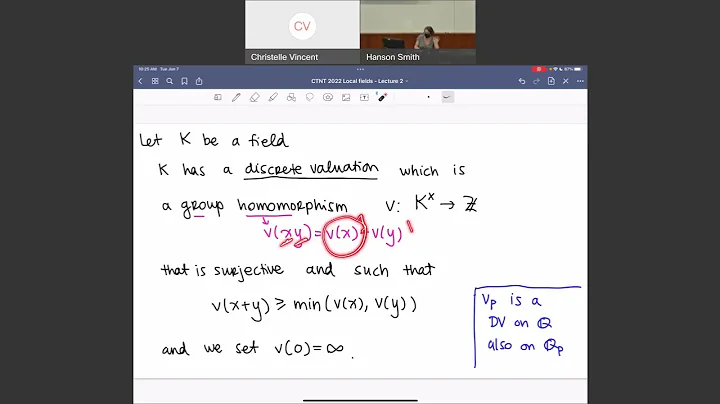 CV
Christelle Vincent
Hanson Smith
10:25 AM Tue Jun 7
97%
CTNT 2022 Local fields - Lecture 2
Let K be a field
K has a discrete valuation which is
a group homomorphism v: K^× → ℤ
v(xy) = v(x) + v(y)
that is surjective and such that
v(x+y) ≥ min(v(x), v(y))
and we set v(0) = ∞.
v_p is a
DV on ℚ
also on ℚ_p